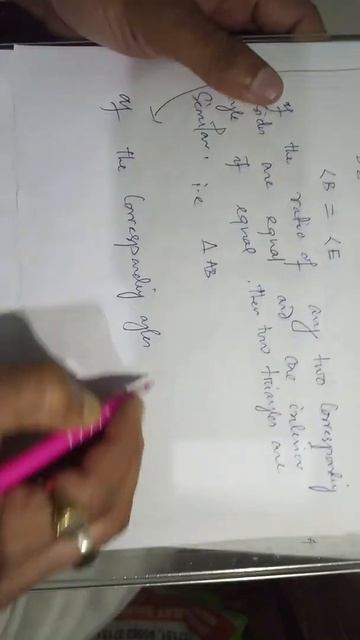 ∠B = ∠E
If the ratio of any two Corresponding
sides are equal and one interior
equal. then two triangles are
Similar. i.e Δ AB
If the Corresponding